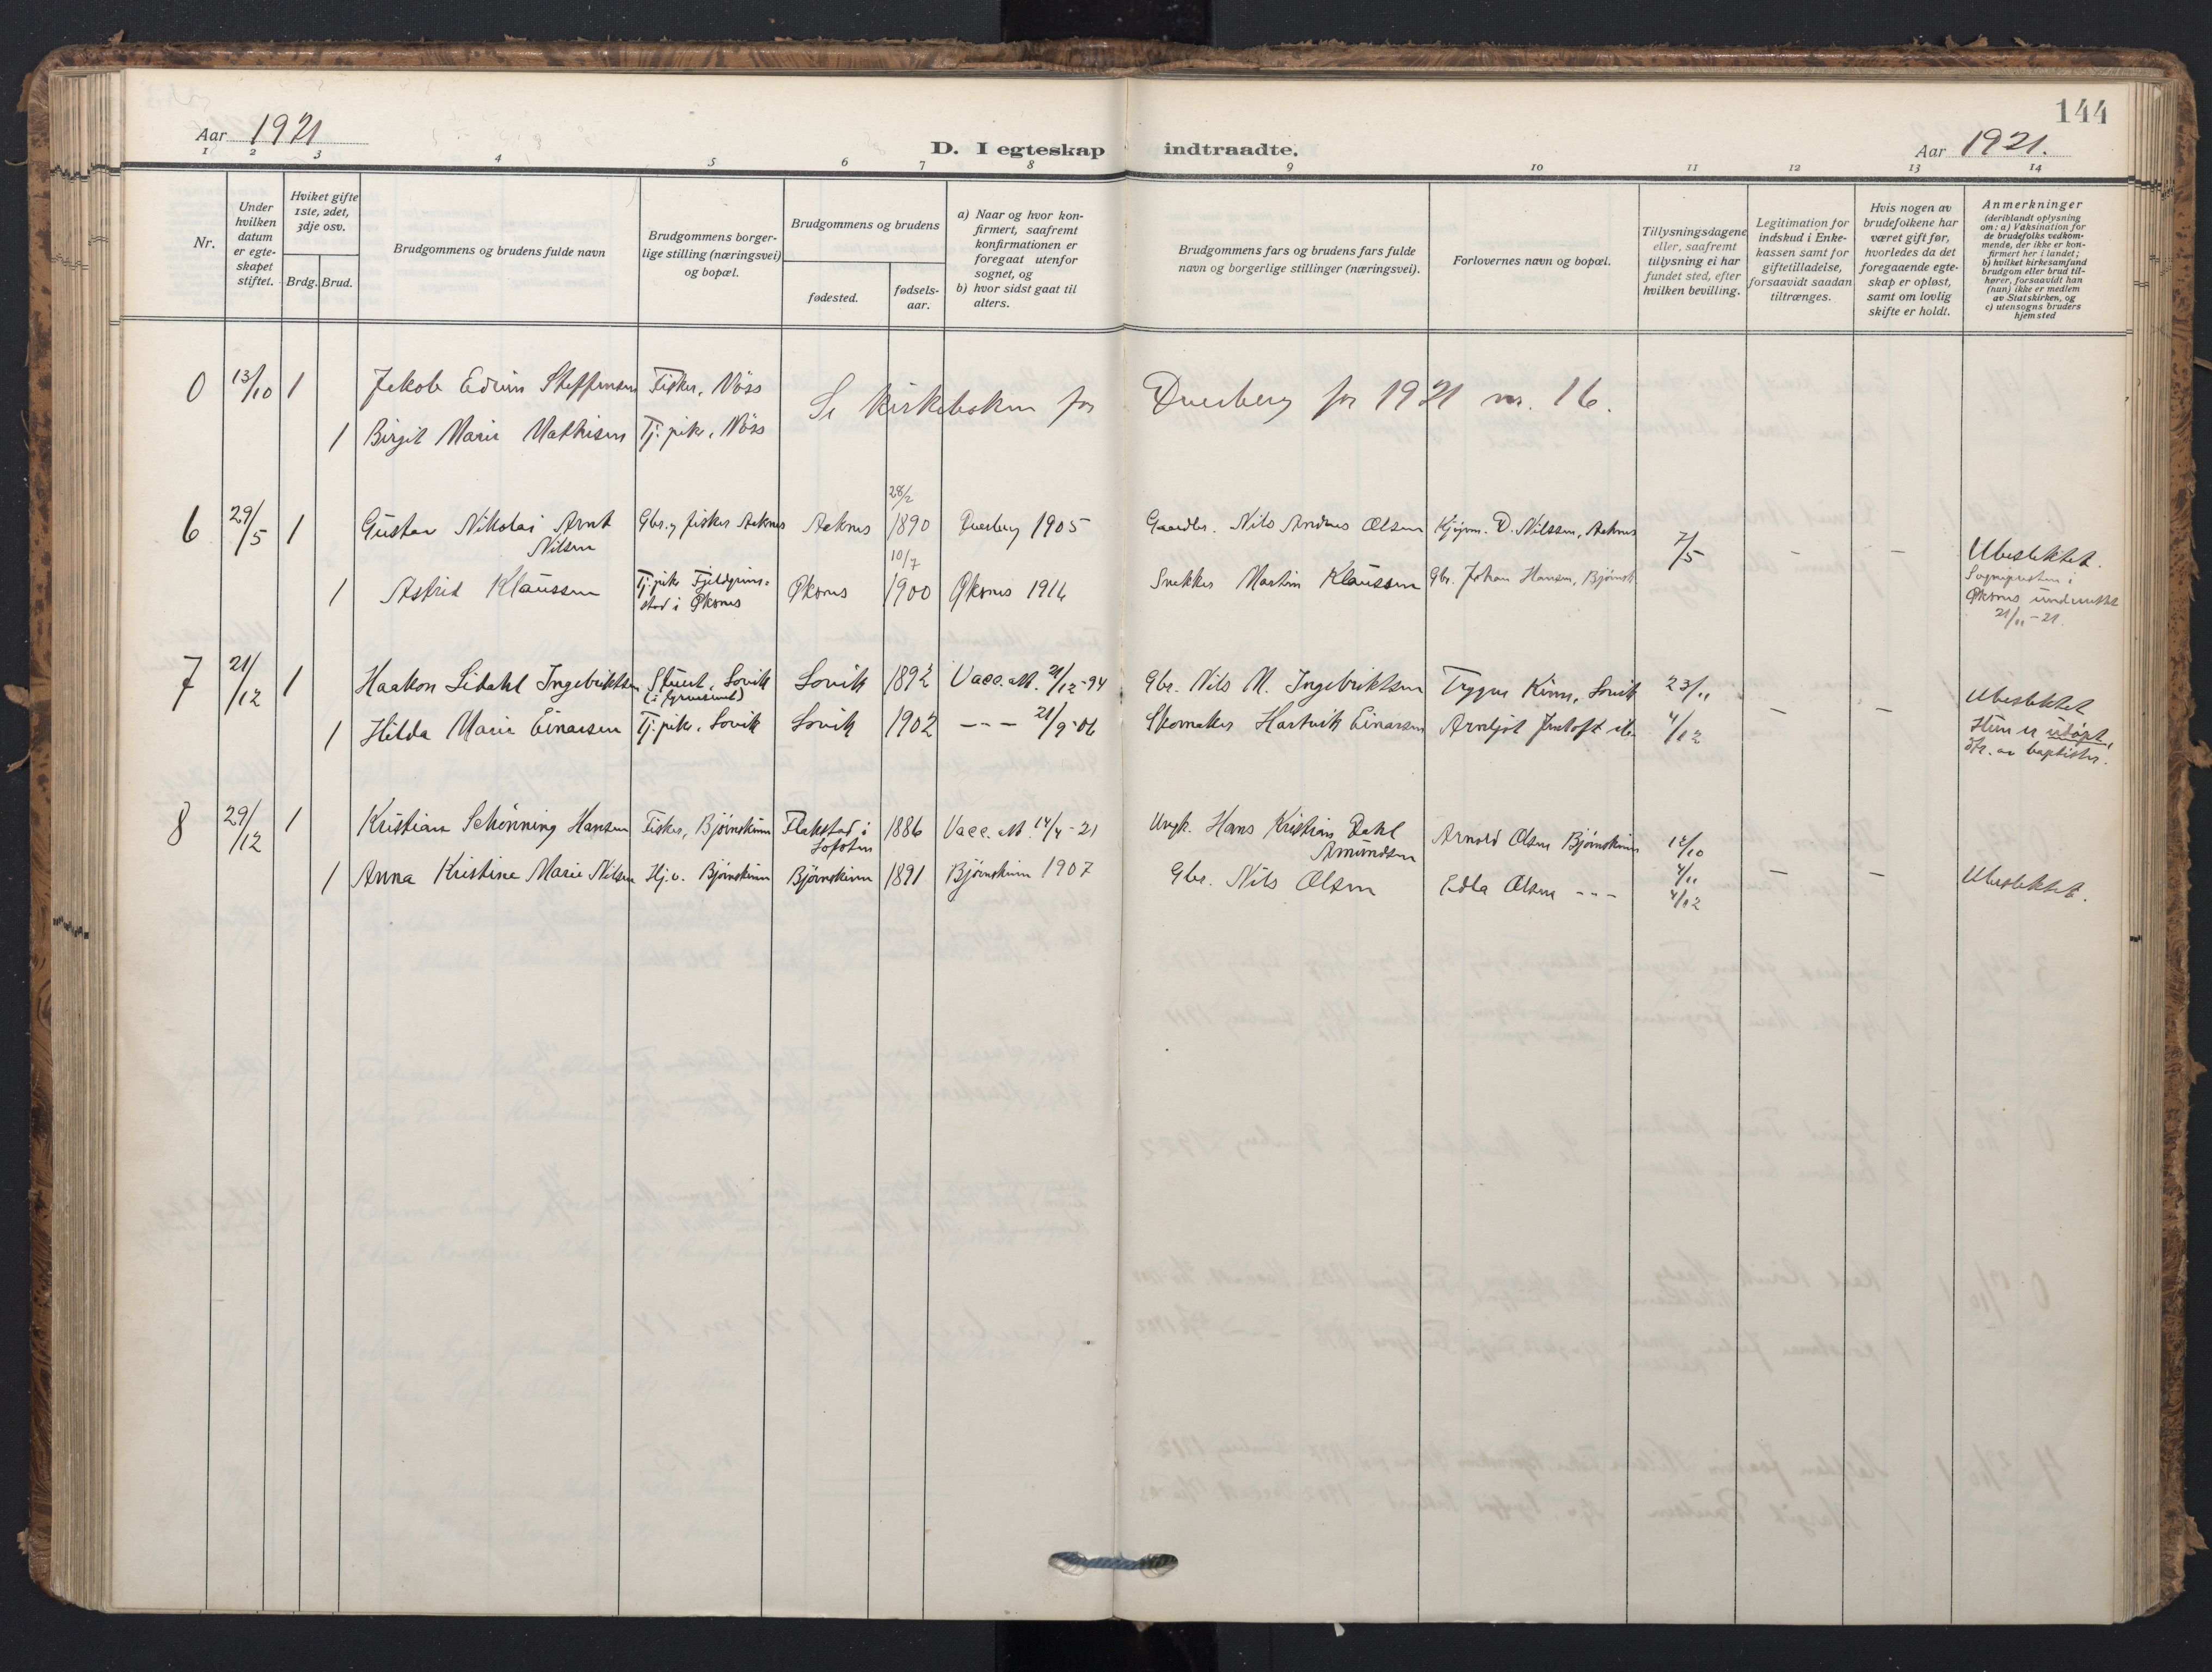 144
Aar 1921
D. I egteskap indtraadte.
Aar 1921.
1 2 3 4 5 6 7 8 9 10 11 12 13 14
Nr.
Under hvilken datum er egteskapet stiftet.
Hviket gifte 1ste, 2det, 3dje osv.
Brdg. Brud.
Brudgommens og brudens fulde navn
Brudgommens borgerlige stilling (næringsvei) og bopæl.
Brudgommens og brudens
fødested.
fødselsaar.
a) Naar og hvor konfirmert, saafremt konfirmationen er foregaat utenfor sognet, og
b) hvor sidst gaat til alters.
Brudgommens fars og brudens fars fulde navn og borgerlige stillinger (næringsvei).
Forlovernes navn og bopæl.
Tillysningsdagene eller, saafremt tillysning ei har fundet sted, efter hvilken bevilling.
Legitimation for indskud i Enkekassen samt for giftetilladelse, forsaavidt saadan tiltrænges.
Hvis nogen av brudefolkene har været gift før, hvorledes da det foregaaende egteskap er opløst, samt om lovlig skifte er holdt.
Anmerkninger
(deriblandt oplysning om: a) Vaksination for de brudefolks vedkommende, der ikke er konfirmert her i landet;
b) hvilket kirkesamfund brudgom eller brud tilhører, forsaavidt han (hun) ikke er medlem av Statskirken, og
c) utensogns bruders hjemsted
0 13/10 1 Jakob Edvin Steffensen Fisker, Nöss Se kirkeboken for Dverberg for 1921 nr. 16.
1 Birgit Marie Mathisen Tj. pike, Nöss
6 29/5 1 Gustav Nikolai Arnt Nilsen Gbr. og fisker Aaknes Aaknes 28/2 1890 Dverberg 1905 Gaardbr. Nils Andreas Olsen D. Nilssen, Aaknes 7/5 - - Ubeslektet.
Sognepresten i Øksnes underrettet 21/11-21.
1 Astrid Klaussen Tj. pike i Øksnes Øksnes 10/7 1900 Øksnes 1916 Snekker Martin Klaussen Gbr. Johan Hansen,
7 21/12 1 Haakon Lidahl Ingebriktsen Sovik Sovik 1892 Vacc. att. 21/12-94 Gbr. Nils M. Ingebriktsen Trygve Sovik 23/11 - - Ubeslektet
1 Hilda Marie Einarsen Tj. pike, Sovik Sovik 1902 --- 21/9-06 Skomaker Hartvik Einarsen Arnljot 4/12 Hun er udöpt, dtr. av baptister.
8 29/12 1 Kristian Schönning Hansen Fisker, Bjørnskinn Flakstad i Lofoten 1886 Vacc. att. 14/4-21 Ungk. Hans Kristian Dahl Amundsen Arnold Olsen Bjørnskinn 12/10
1 Anna Kristine Marie Nilsen Hj.v. Bjørnskinn Bjørnskinn 1891 Bjørnskinn 1907 Gbr. Nils Olsen Edla Olsen --- 4/11 4/12 - - Ubeslektet.